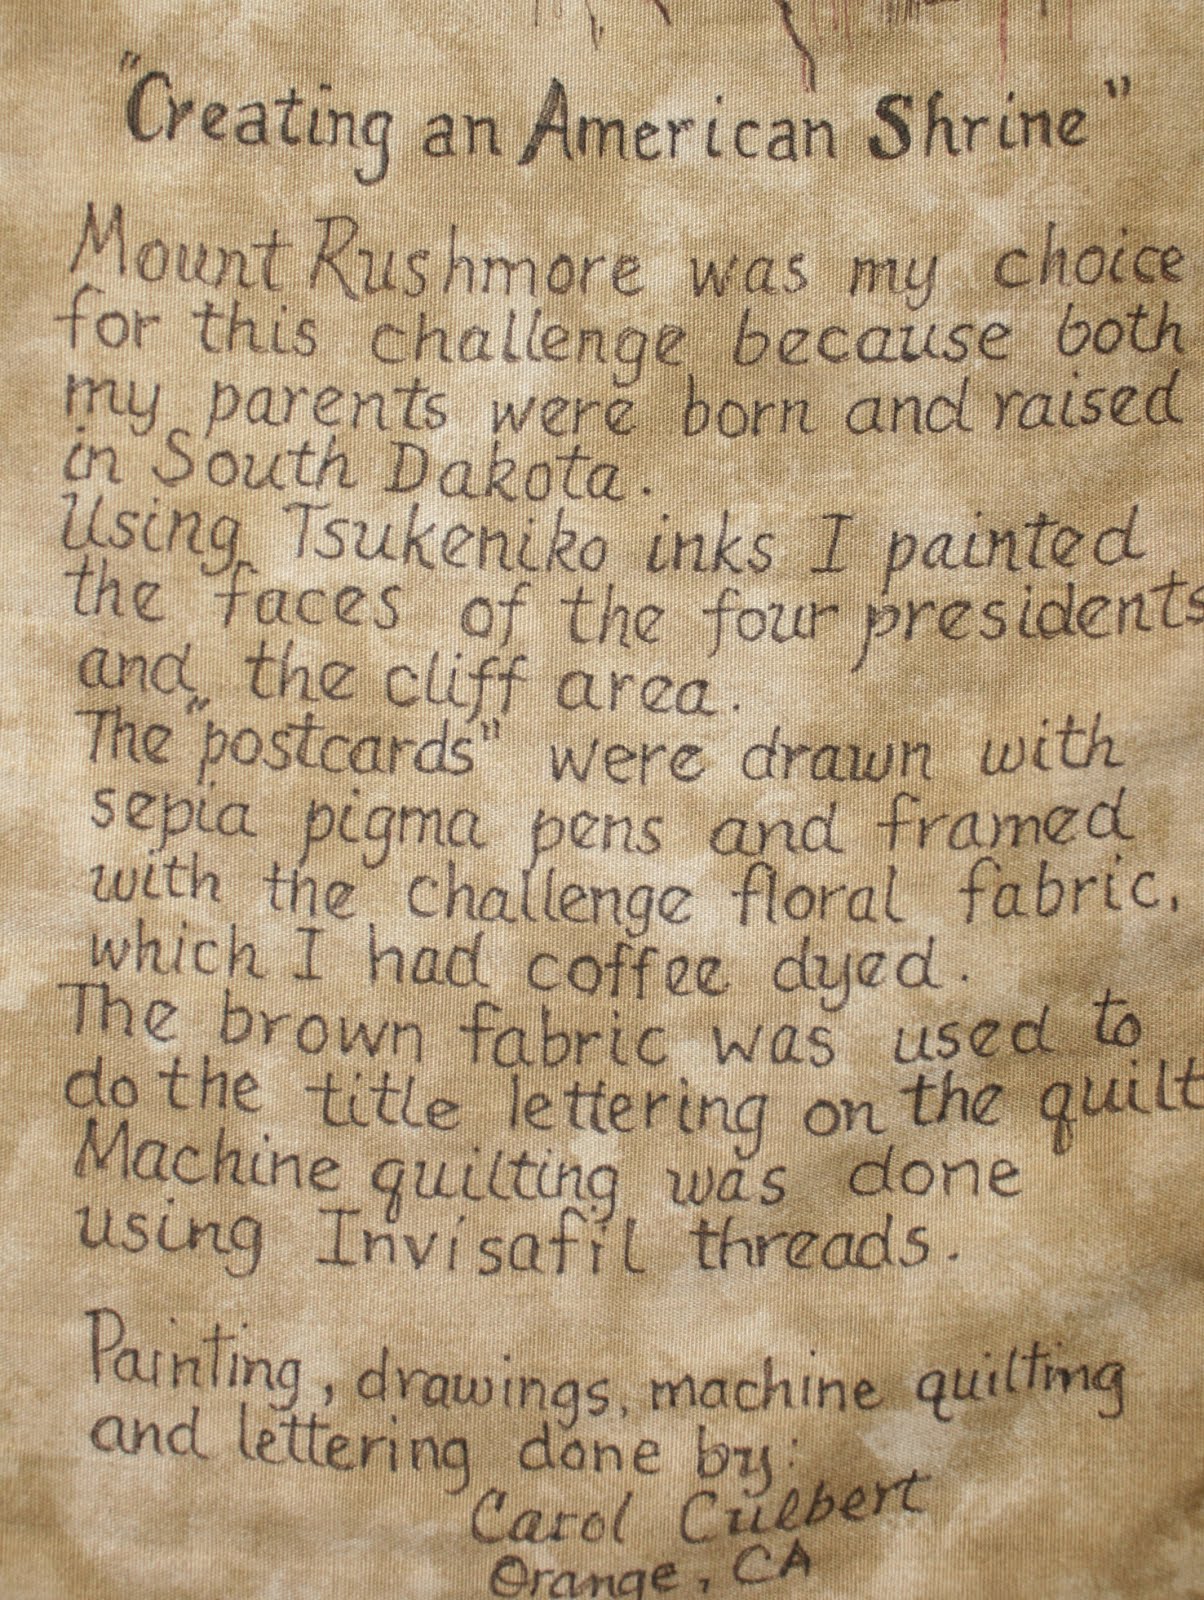 "Creating an American Shrine"
Mount Rushmore was my choice
for this challenge because both
my parents were born and raised
in South Dakota.
Using Tsukeniko inks I painted
the faces of the four presidents
and the cliff area.
The "postcards" were drawn with
sepia pigma pens and framed
with the challenge floral fabric,
which I had coffee dyed.
The brown fabric was used to
do the title lettering on the quilt
Machine quilting was done
using Invisafil threads.
Painting, drawings, machine quilting
and lettering done by:
Carol Culbert
Orange, CA